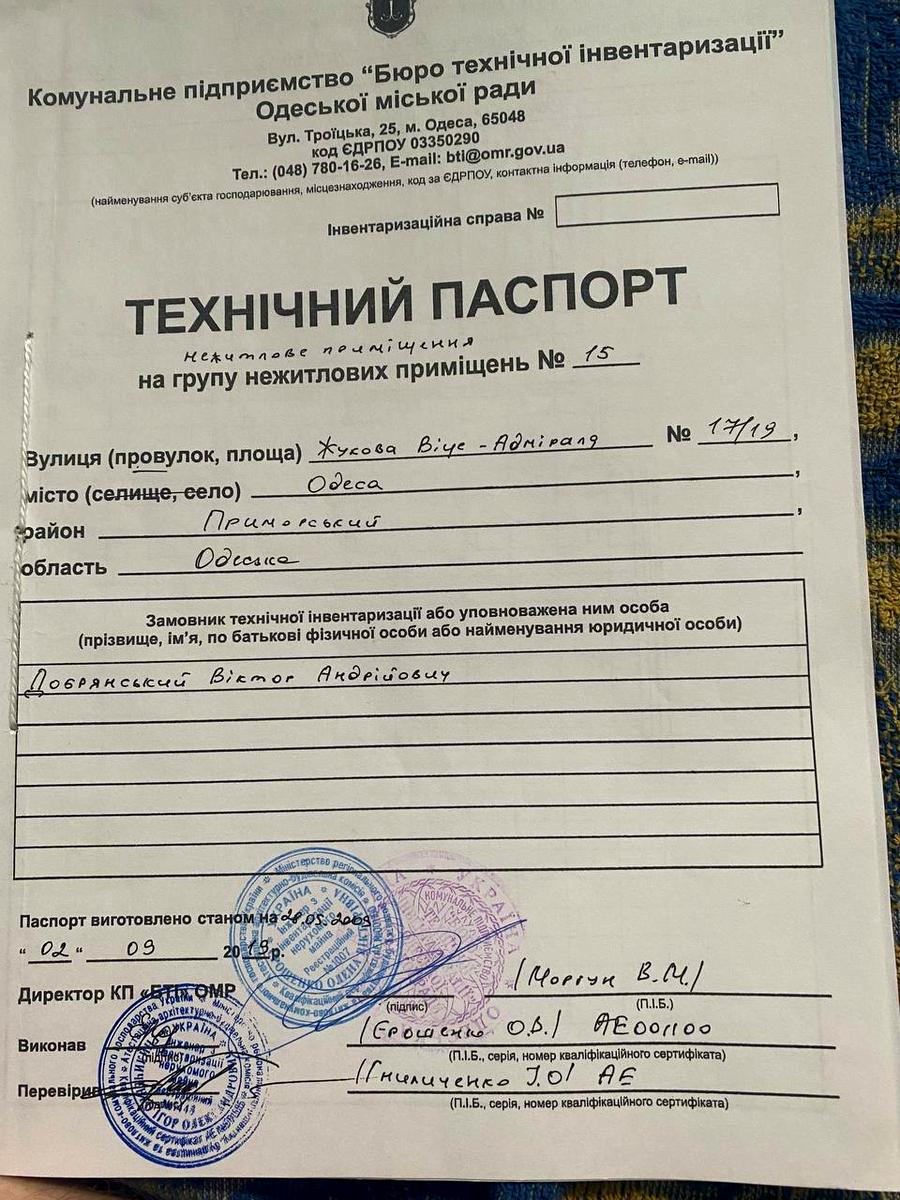 Комунальне підприємство “Бюро технічної інвентаризації”
Одеської міської ради
Вул. Троїцька, 25, м. Одеса, 65048
код ЄДРПОУ 03350290
Тел.: (048) 780-16-26, E-mail: bti@omr.gov.ua
(найменування суб’єкта господарювання, місцезнаходження, код за ЄДРПОУ, контактна інформація (телефон, e-mail))
Інвентаризаційна справа №
ТЕХНІЧНИЙ ПАСПОРТ
нежитлове приміщення
на групу нежитлових приміщень № 15
Вулиця (провулок, площа) Жукова Віце-Адмірала № 17/19,
місто (селище, село) Одеса,
район Приморський,
область Одеська
Замовник технічної інвентаризації або уповноважена ним особа
(прізвище, ім’я, по батькові фізичної особи або найменування юридичної особи)
Добрянський Віктор Андрійович
Паспорт виготовлено станом на 28.05.2009
“ 02 “ 09 2019р.
Директор КП «БТІ» ОМР /Моргун В.М/
(підпис) (П.І.Б.)
Виконав /Єрошенко О.В/ АЕ001100
(підпис) (П.І.Б., серія, номер кваліфікаційного сертифіката)
Перевірив /Гниличенко І.О/ АЕ
(П.І.Б., серія, номер кваліфікаційного сертифіката)
УКРАЇНА
Інженер з
інвентаризації
нерухомого
майна
Реєстраційний
УКРАЇНА
Інженер з
інвентаризації
нерухомого
майна
УКРАЇНА